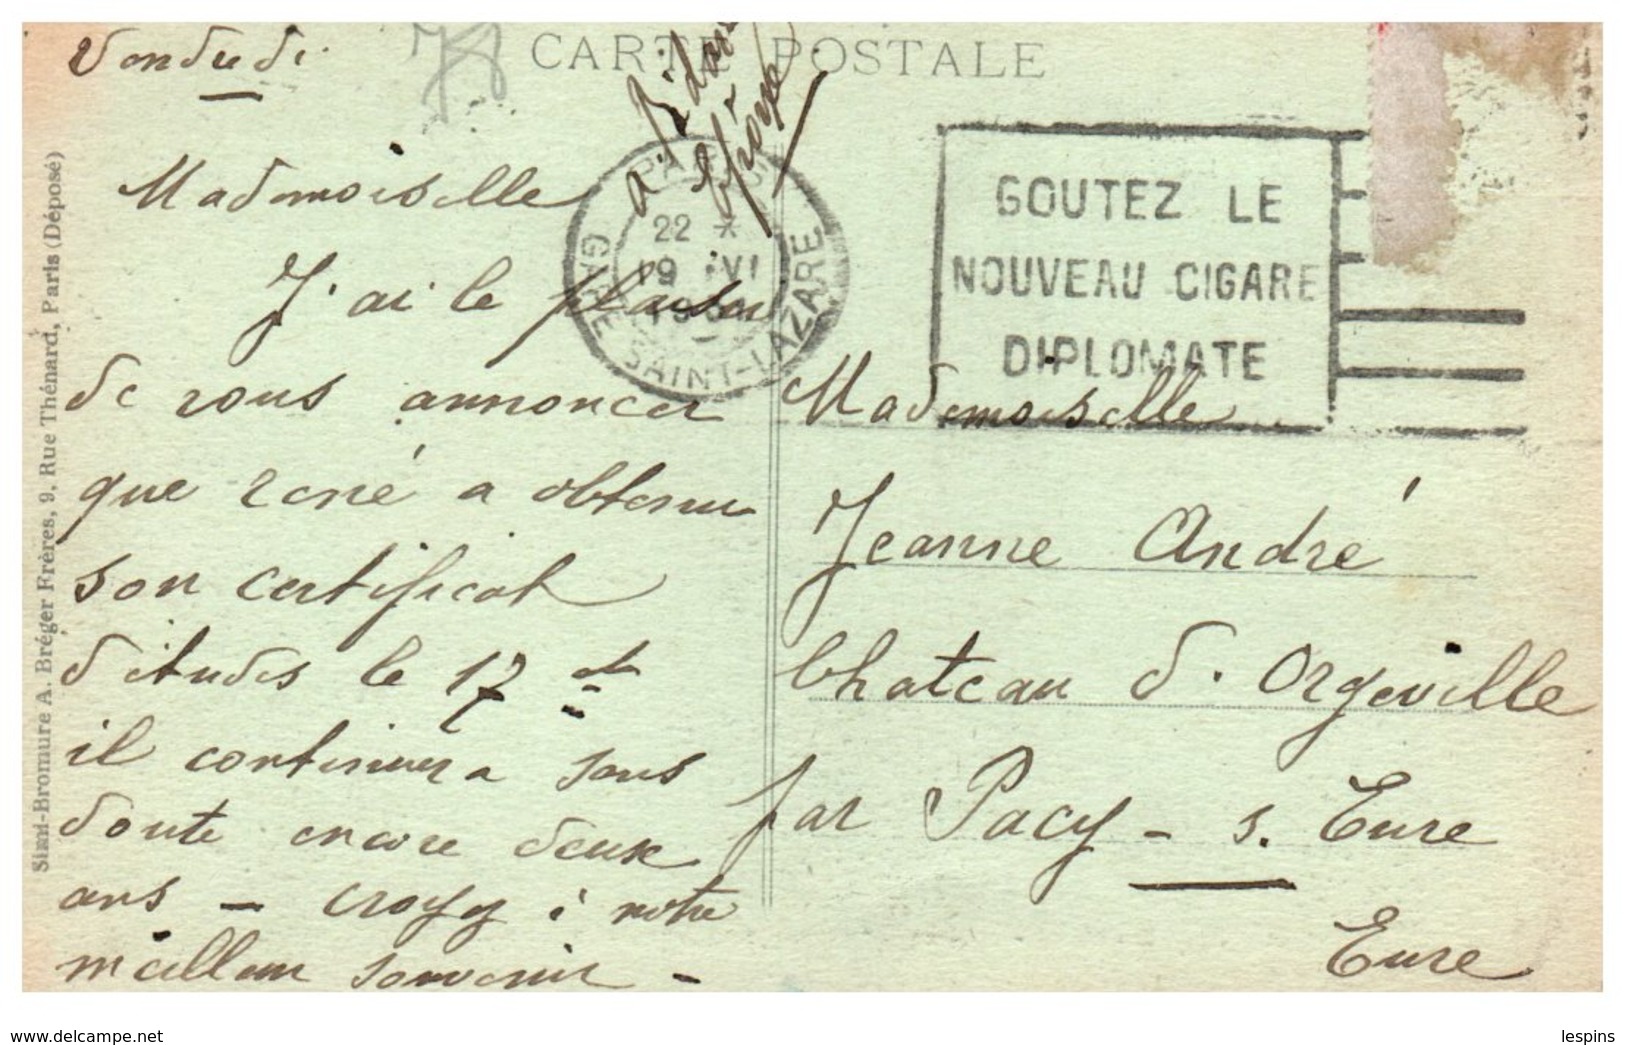 Vendredi
CARTE POSTALE
Mademoiselle
J'ai le plaisir
de vous annoncer
que René a obtenu
son certificat
d'études le 17 ct
il continuera sans
doute encore deux
ans - croyez à notre
meilleur souvenir -
PARIS
22 *
19 VI
GARE SAINT-LAZARE
GOUTEZ LE
NOUVEAU CIGARE
DIPLOMATE
Mademoiselle
Jeanne André
Chateau d'Orgeville
par Pacy - s. Eure
Eure
Simi-Bromure A. Bréger Frères, 9, Rue Thénard, Paris (Déposé)
delcampe.net
lespins